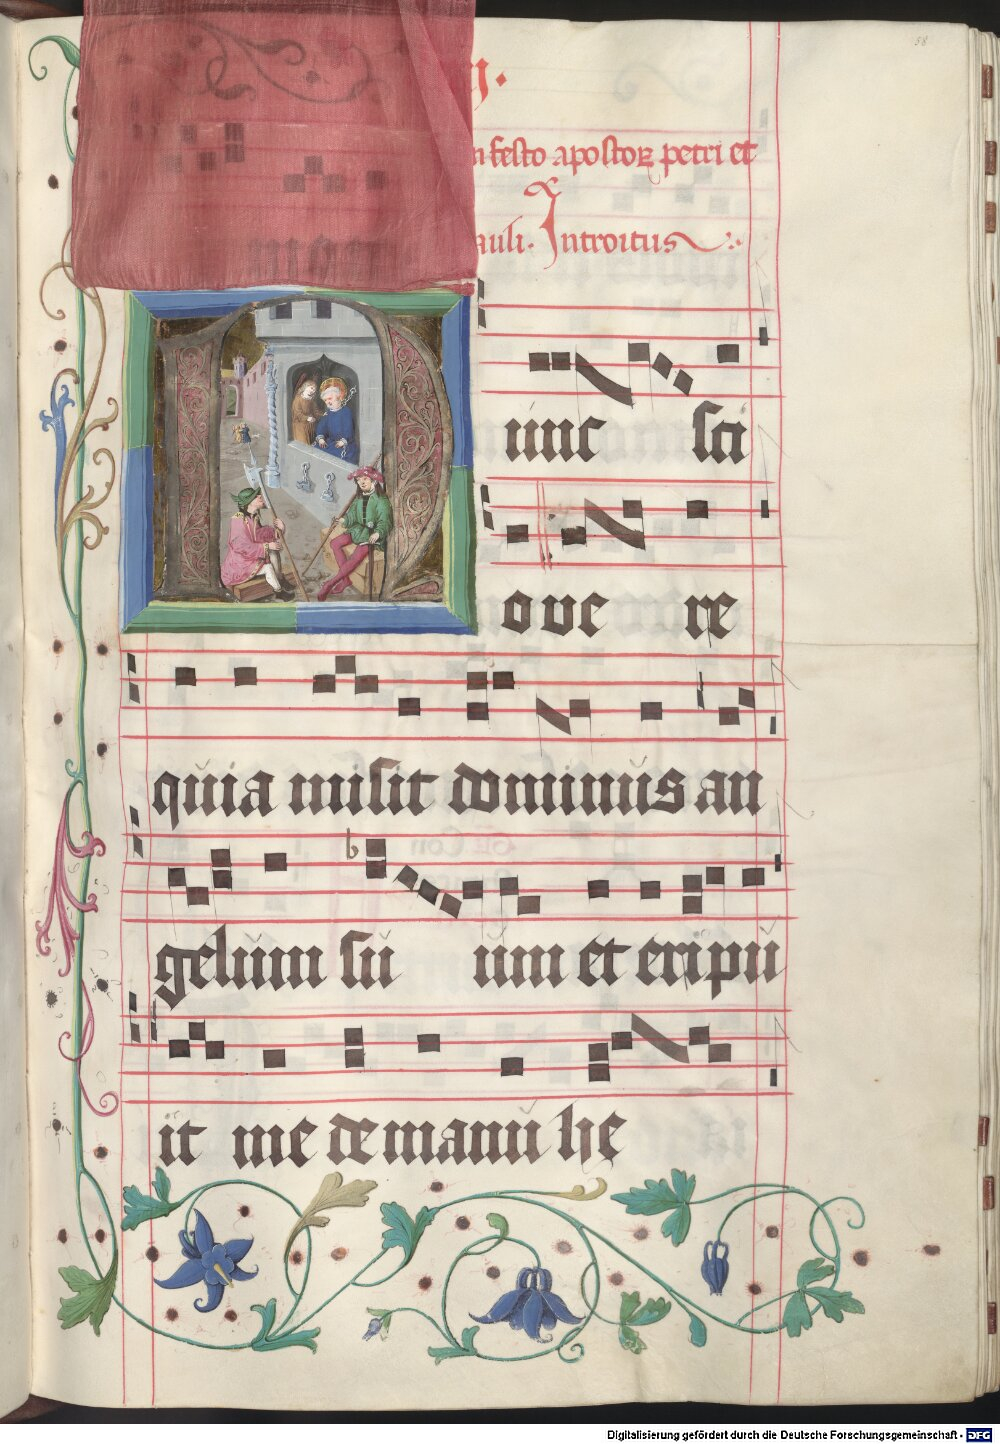 58
n festo apostoꝝ petri et
auli. Introitus
Nunc sci
o vere re
quia misit dominus an
gelum su um et eripu
it me de manu he
Digitalisierung gefördert durch die Deutsche Forschungsgemeinschaft - DFG